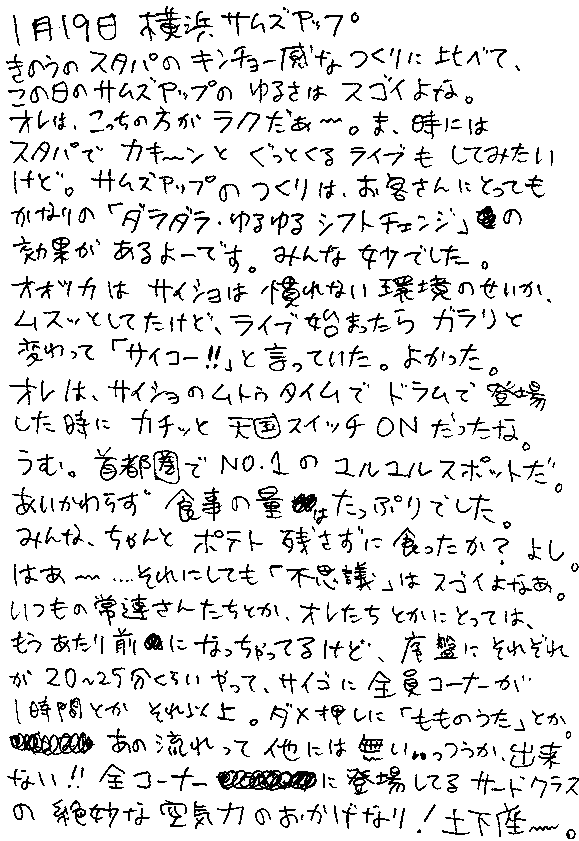 1月19日 横浜 サムズアップ。
きのうの スタパの キンチョー感な つくりに 比べて、
この日の サムズアップの ゆるさは スゴイよな。
オレは、こっちの方が ラクだぁ〜。ま、時には
スタパで カキ〜ンと ぐっとくる ライブも してみたい
けど。サムズアップの つくりは、お客さんにとっても
かなりの「ダラダラ・ゆるゆる シフトチェンジ」の
効果が あるよーです。みんな 妙でした。
オオツカは サイショは 慣れない 環境のせいか、
ムスッとしてたけど、ライブ始まったら ガラリと
変わって「サイコー!!」と言っていた。よかった。
オレは、サイショのムトゥタイムで ドラムで 登場
した時に カチッと 天国スイッチ ONだったな。
うむ。首都圏で NO.1の ユルユルスポットだ。
あいかわらず 食事の量はたっぷりでした。
みんな、ちゃんと ポテト 残さずに 食ったか? よし。
はあ〜....それにしても「不思議」は スゴイよなあ。
いつもの常連さんたちとか、オレたち とかにとっては、
もう あたり前に なっちゃってるけど、序盤に それぞれ
が 20〜25分くらい やって、サイゴに 全員コーナーが
1時間とか それ以上。ダメ押しに「もものうた」とか。
あの 流れって 他には 無い..っつうか、出来
ない!! 全コーナーに登場してる サードクラス
の 絶妙な 空気力の おかげなり! 土下座〜。